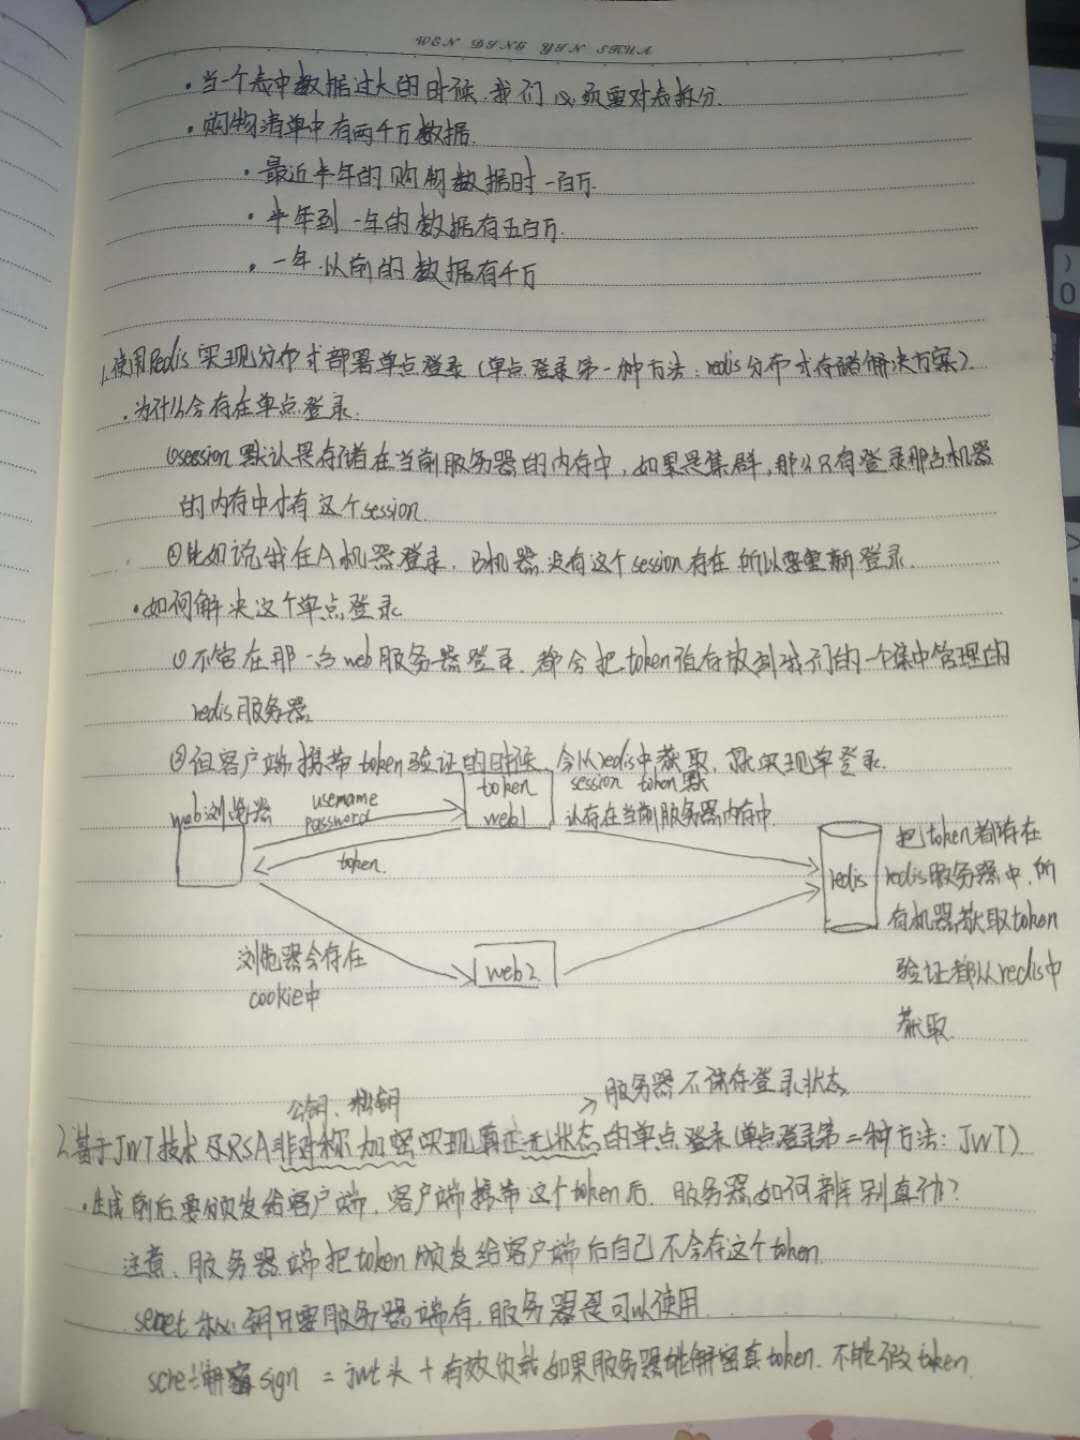 WEN DING YIN SHUA
·当一个表中数据过大的时候.我们必须要对表拆分.
·购物清单中有两千万数据.
·最近半年的购物数据时一百万.
·半年到一年的数据有五百万.
·一年以前的数据有千万
1.使用Redis实现分布式部署单点登录(单点登录第一种方法:redis分布式存储解决方案).
·为什么会存在单点登录.
①session默认是存储在当前服务器的内存中,如果是集群,那么只有登录那台机器
的内存中才有这个session.
②比如说我在A机器登录.B机器没有这个session存在所以要重新登录.
·如何解决这个单点登录
①不管在那一台web服务器登录.都会把token值存放到我们的一个集中管理的
redis服务器.
②但客户端携带token验证的时候.会从redis中获取.就实现单登录.
web浏览器
username
password
token
web1
session token默
认存在当前服务器内存中
token.
redis
把token都存在
redis服务器中.所
有机器获取token
验证都从redis中
获取.
浏览器会存在
cookie中
web2
→服务器不保存登录状态
公钥、私钥
2.基于JWT技术及RSA非对称加密实现真正无状态的单点登录(单点登录第二种方法:JWT)
·生成前后要颁发给客户端,客户端携带这个token后.服务器如何辨别真伪?
注意.服务器端把token颁发给客户端后自己不会存这个token
私钥只要服务器端有.服务器是可以使用.
sign = jwt头+有效负载 如果服务器能解密真token.不能假token.